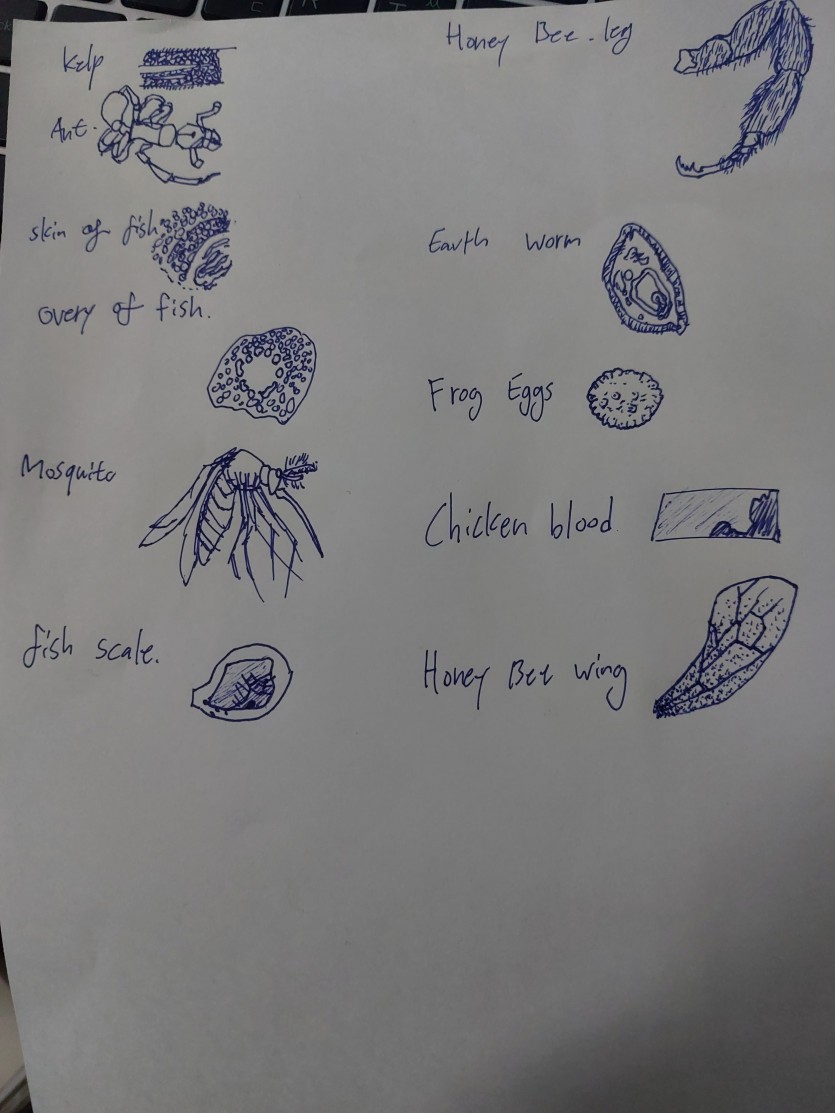 Kelp
Ant.
skin of fish.
overy of fish.
Mosquito
fish scale.
Honey Bee. leg
Earth worm
Frog Eggs
Chicken blood
Honey Bee wing